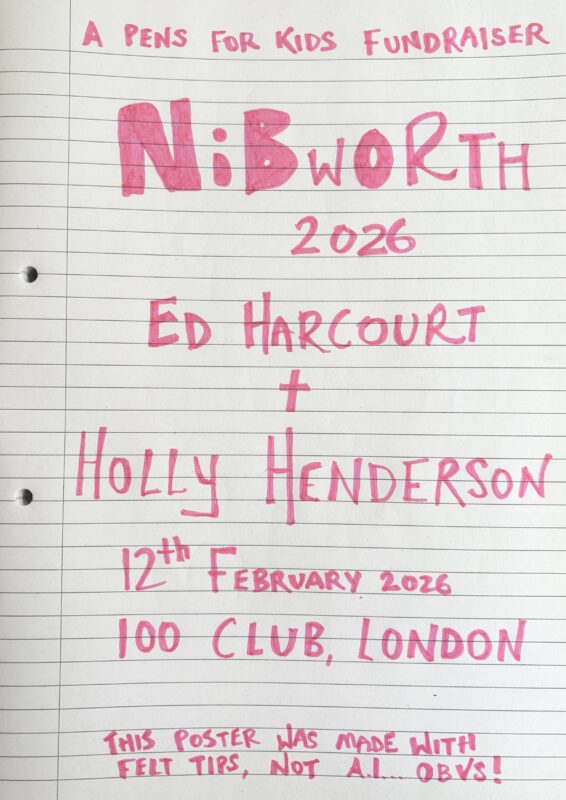 A PENS FOR KIDS FUNDRAISER
NiBWORTH
2026
ED HARCOURT
+
HOLLY HENDERSON
12th FEBRUARY 2026
100 CLUB, LONDON
THIS POSTER WAS MADE WITH
FELT TIPS, NOT A.I... OBVS!